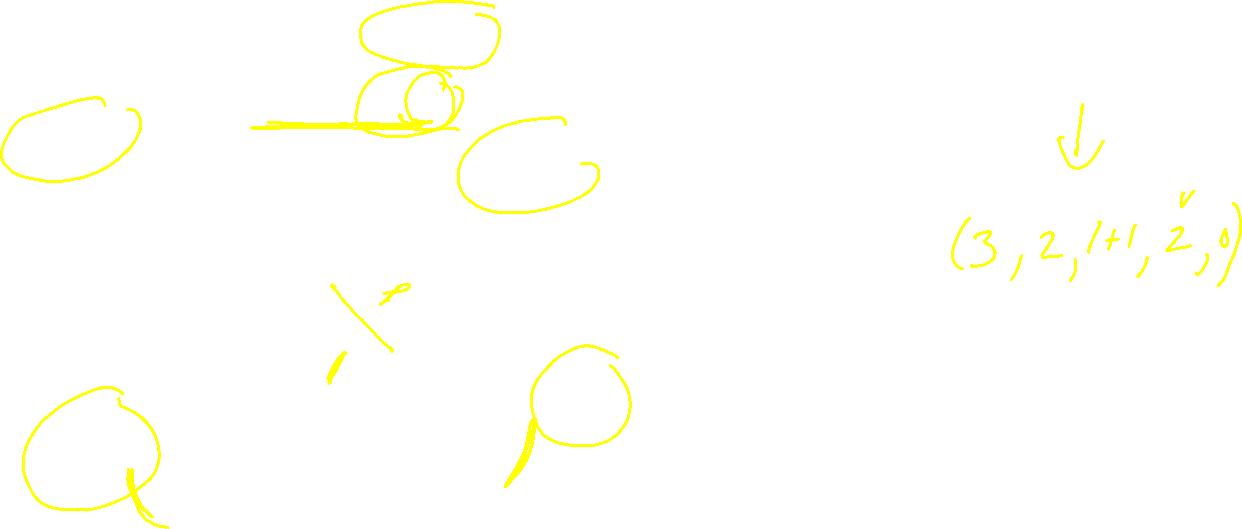 (3, 2, 1+1, 2, 0)